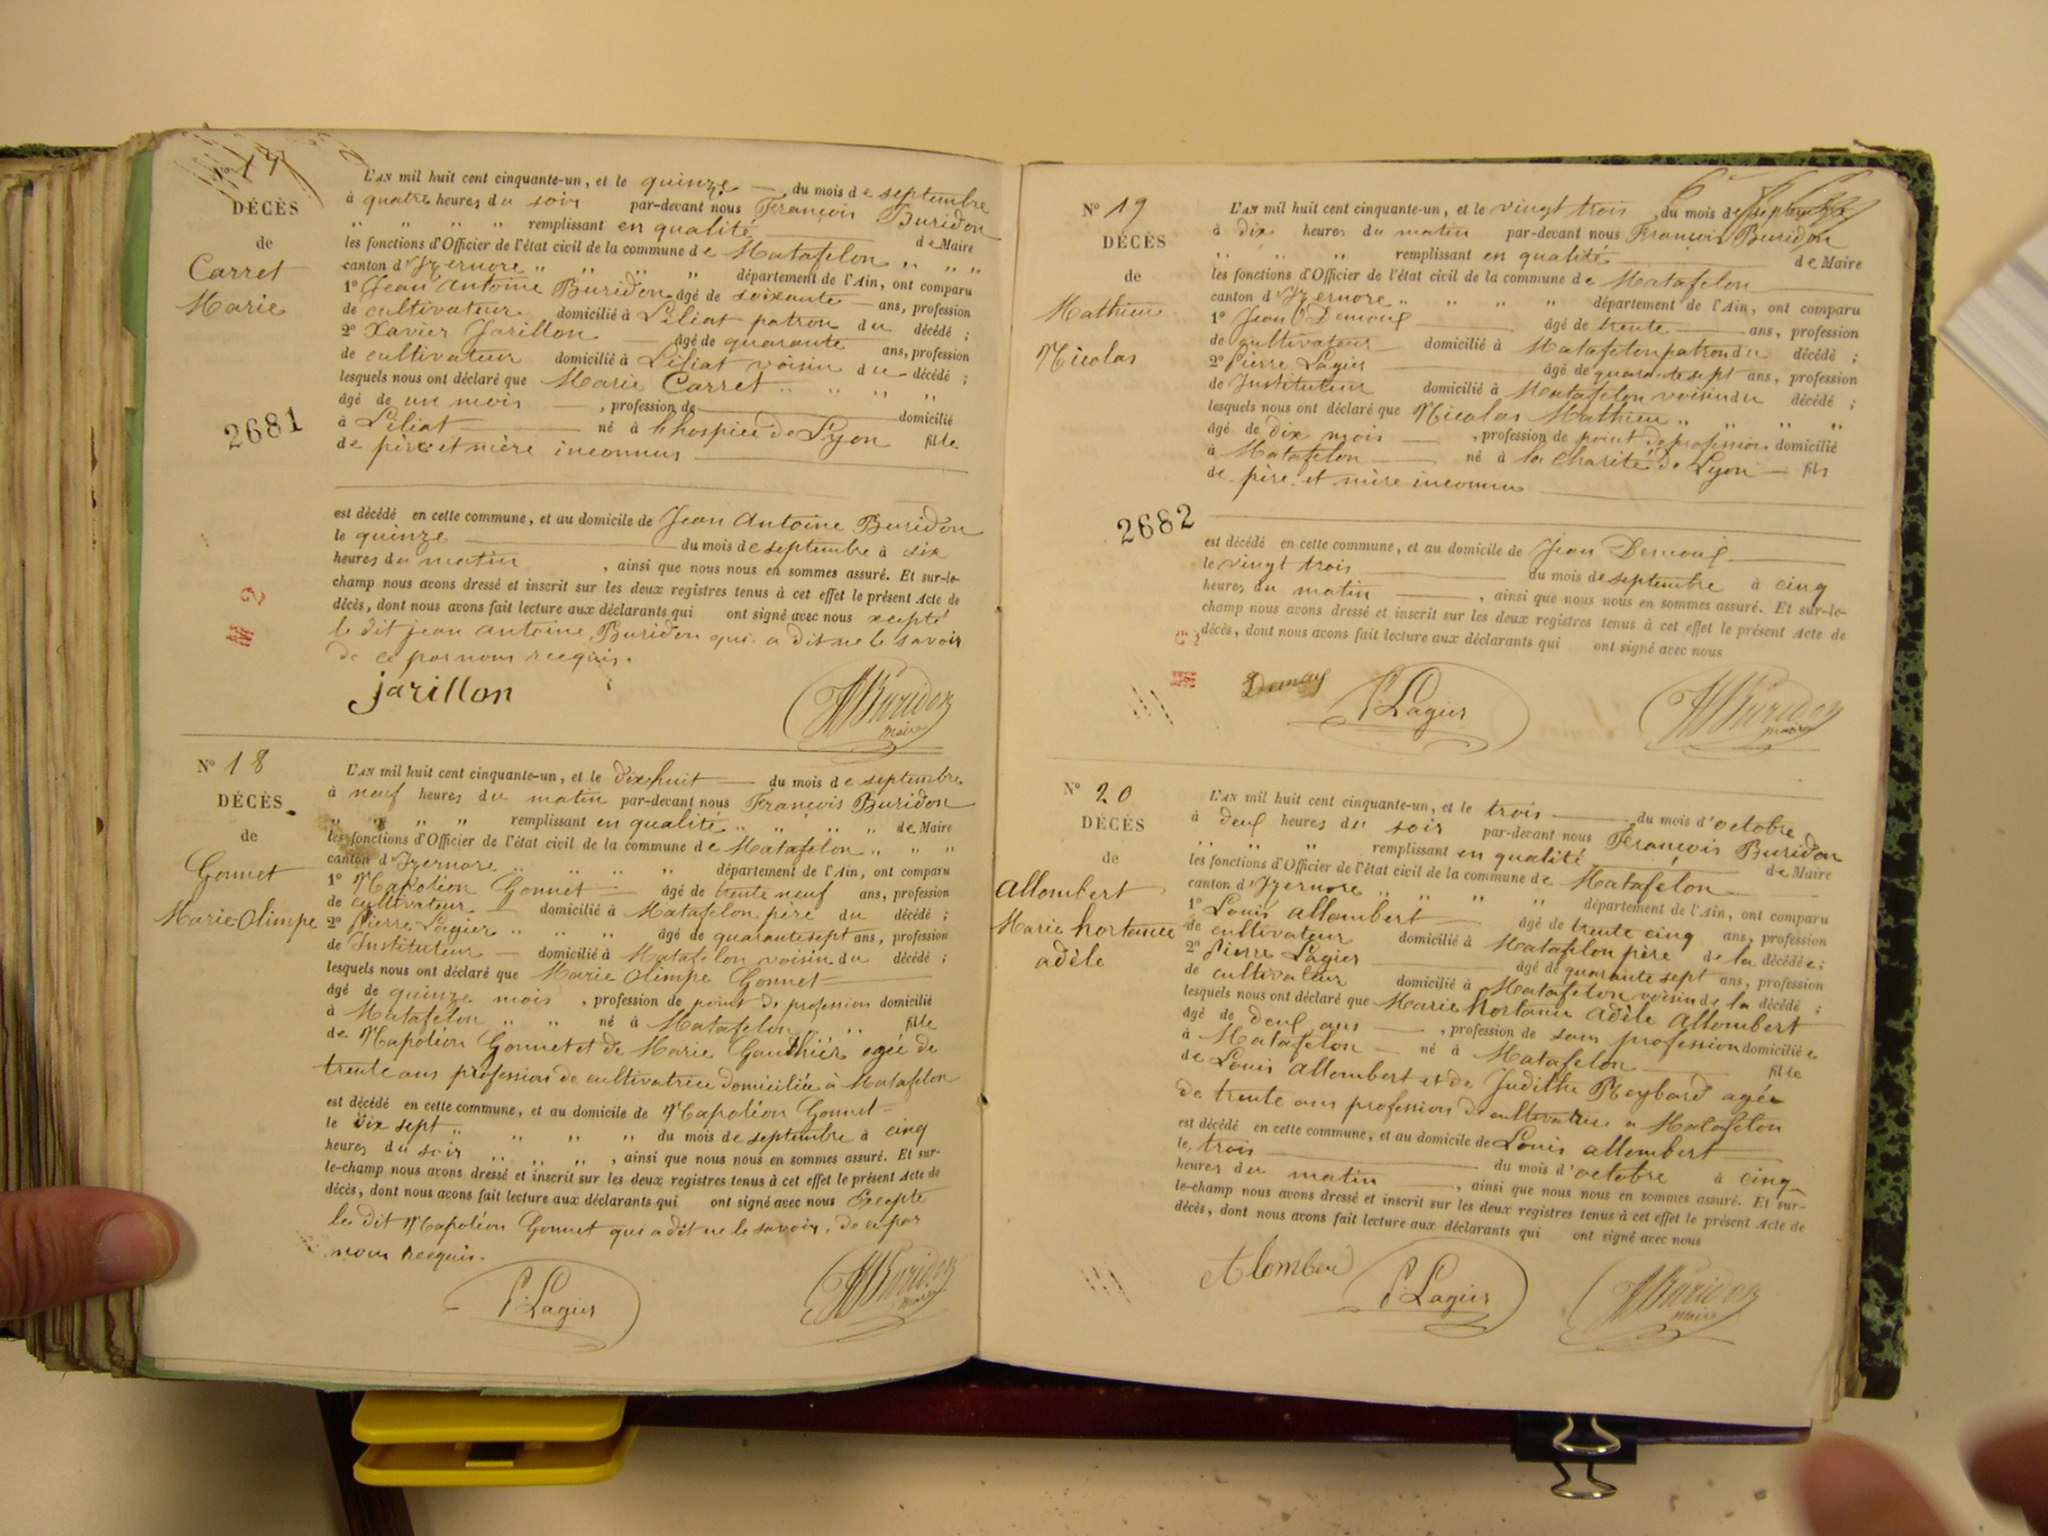 17
DÉCÈS
de
Carret
Marie
2681
L'AN mil huit cent cinquante-un, et le quinze du mois de septembre
à quatre heures du soir par-devant nous François Buridon
remplissant en qualité de Maire
les fonctions d'Officier de l'état civil de la commune de Matafelon
canton d'Izernore département de l'Ain, ont comparu
1° Jean Antoine Buridon âgé de soixante ans, profession
de cultivateur domicilié à Liliat patron du décédé ;
2° Xavier Jarillon âgé de quarante ans, profession
de cultivateur domicilié à Liliat voisin du décédé ;
lesquels nous ont déclaré que Marie Carret
âgé de un mois , profession de domicilié
à Liliat né à l'hospice de Lyon fille
de père et mère inconnus
est décédé en cette commune, et au domicile de Jean Antoine Buridon
le quinze du mois de septembre à six
heures du matin , ainsi que nous nous en sommes assuré. Et sur-le-
champ nous avons dressé et inscrit sur les deux registres tenus à cet effet le présent Acte de
décès, dont nous avons fait lecture aux déclarants qui ont signé avec nous xcepté
le dit jean antoine Buridon qui a dit ne le savoir
de ce par nous recquis.
jarillon Buridon maire
N° 18
DÉCÈS
de
Gonnet
Marie-Olimpe
L'AN mil huit cent cinquante-un, et le dix huit du mois de septembre
à neuf heures du matin par-devant nous François Buridon
remplissant en qualité de Maire
les fonctions d'Officier de l'état civil de la commune de Matafelon
canton d'Izernore département de l'Ain, ont comparu
1° Napoléon Gonnet âgé de trente neuf ans, profession
de cultivateur domicilié à Matafelon père du décédé ;
2° Pierre Lagier âgé de quarante sept ans, profession
de Instituteur domicilié à Matafelon voisin du décédé ;
lesquels nous ont déclaré que Marie Olimpe Gonnet
âgé de quinze mois , profession de point de profession domicilié
à Matafelon né à Matafelon fille
de Napoléon Gonnet et de Marie Gauthier agée de
trente ans profession de cultivatrice domiciliée à Matafelon
est décédé en cette commune, et au domicile de Napoléon Gonnet
le dix sept du mois de septembre à cinq
heures du soir , ainsi que nous nous en sommes assuré. Et sur-
le-champ nous avons dressé et inscrit sur les deux registres tenus à cet effet le présent Acte de
décès, dont nous avons fait lecture aux déclarants qui ont signé avec nous Excepté
le dit Napoléon Gonnet qui a dit ne le savoir, de ce par
nous recquis.
P. Lagier Buridon maire
N° 19
DÉCÈS
de
Mathieu
Nicolas
2682
L'AN mil huit cent cinquante-un, et le vingt trois du mois de septembre
à dix heures du matin par-devant nous François Buridon
remplissant en qualité de Maire
les fonctions d'Officier de l'état civil de la commune de Matafelon
canton d'Izernore département de l'Ain, ont comparu
1° Jean âgé de trente ans, profession
de cultivateur domicilié à Matafelon patron du décédé ;
2° Pierre Lagier âgé de quarante sept ans, profession
de Instituteur domicilié à Matafelon voisin du décédé ;
lesquels nous ont déclaré que Nicolas Mathieu
âgé de dix mois , profession de point de profession domicilié
à Matafelon né à la charité de Lyon fils
de père et mère inconnus
est décédé en cette commune, et au domicile de Jean
le vingt trois du mois de septembre à cinq
heures du matin , ainsi que nous nous en sommes assuré. Et sur-le-
champ nous avons dressé et inscrit sur les deux registres tenus à cet effet le présent Acte de
décès, dont nous avons fait lecture aux déclarants qui ont signé avec nous
P. Lagier Buridon maire
N° 20
DÉCÈS
de
allombert
Marie hortance
adèle
L'AN mil huit cent cinquante-un, et le trois du mois d'octobre
à deux heures du soir par-devant nous François Buridon
remplissant en qualité de Maire
les fonctions d'Officier de l'état civil de la commune de Matafelon
canton d'Izernore département de l'Ain, ont comparu
1° Louis allombert âgé de trente cinq ans, profession
de cultivateur domicilié à Matafelon père de la décédée ;
2° Pierre Lagier âgé de quarante sept ans, profession
de cultivateur domicilié à Matafelon voisin de la décédé ;
lesquels nous ont déclaré que Marie hortance adèle allombert
âgé de deux ans , profession de sans profession domiciliée
à Matafelon né à Matafelon fille
de Louis allombert et de Judithe Reybard agée
de trente ans profession de cultivatrice a Matafelon
est décédé en cette commune, et au domicile de Louis allombert
le trois du mois d'octobre à cinq
heures du matin , ainsi que nous nous en sommes assuré. Et sur-
le-champ nous avons dressé et inscrit sur les deux registres tenus à cet effet le présent Acte de
décès, dont nous avons fait lecture aux déclarants qui ont signé avec nous
P. Lagier Buridon maire